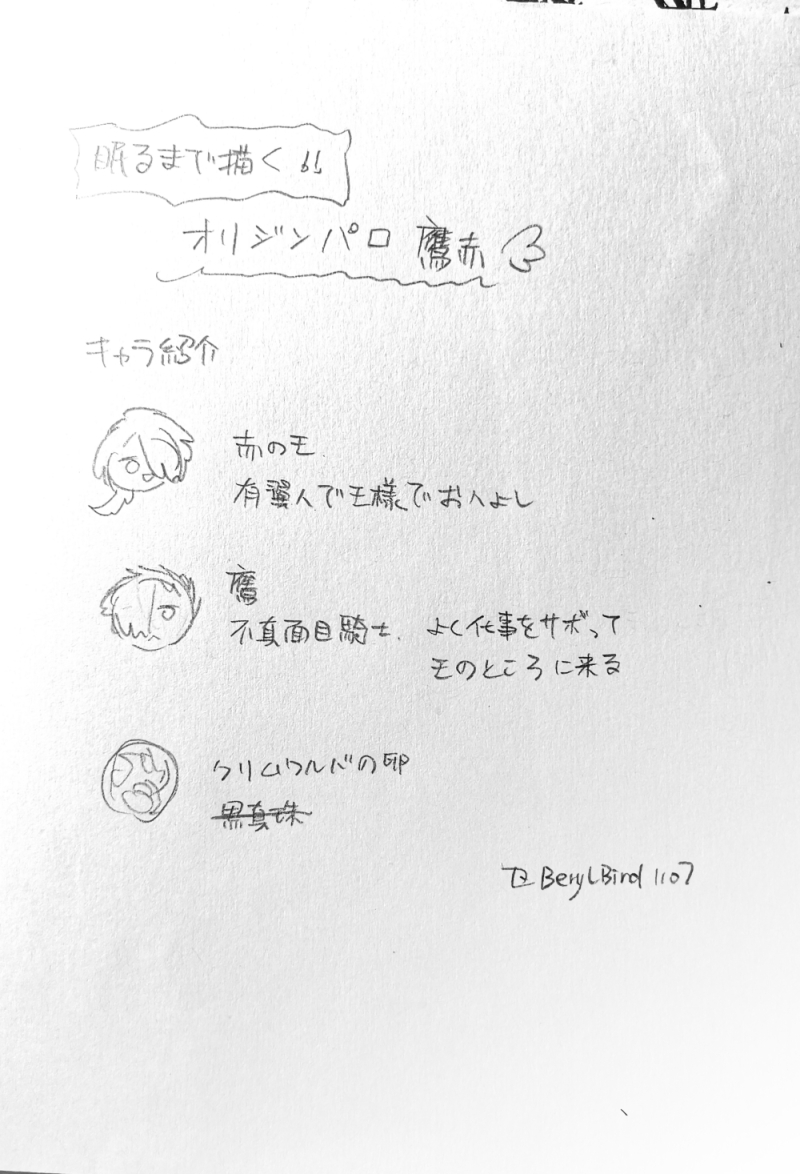 眠るまで描く
オリジンパロ 鷹赤
キャラ紹介
赤の王
有翼人で王様でお人よし
鷹
不真面目騎士. よく仕事をサボって
王のところに来る
クリムワルバの卵
黒真珠
BerylBird 1107